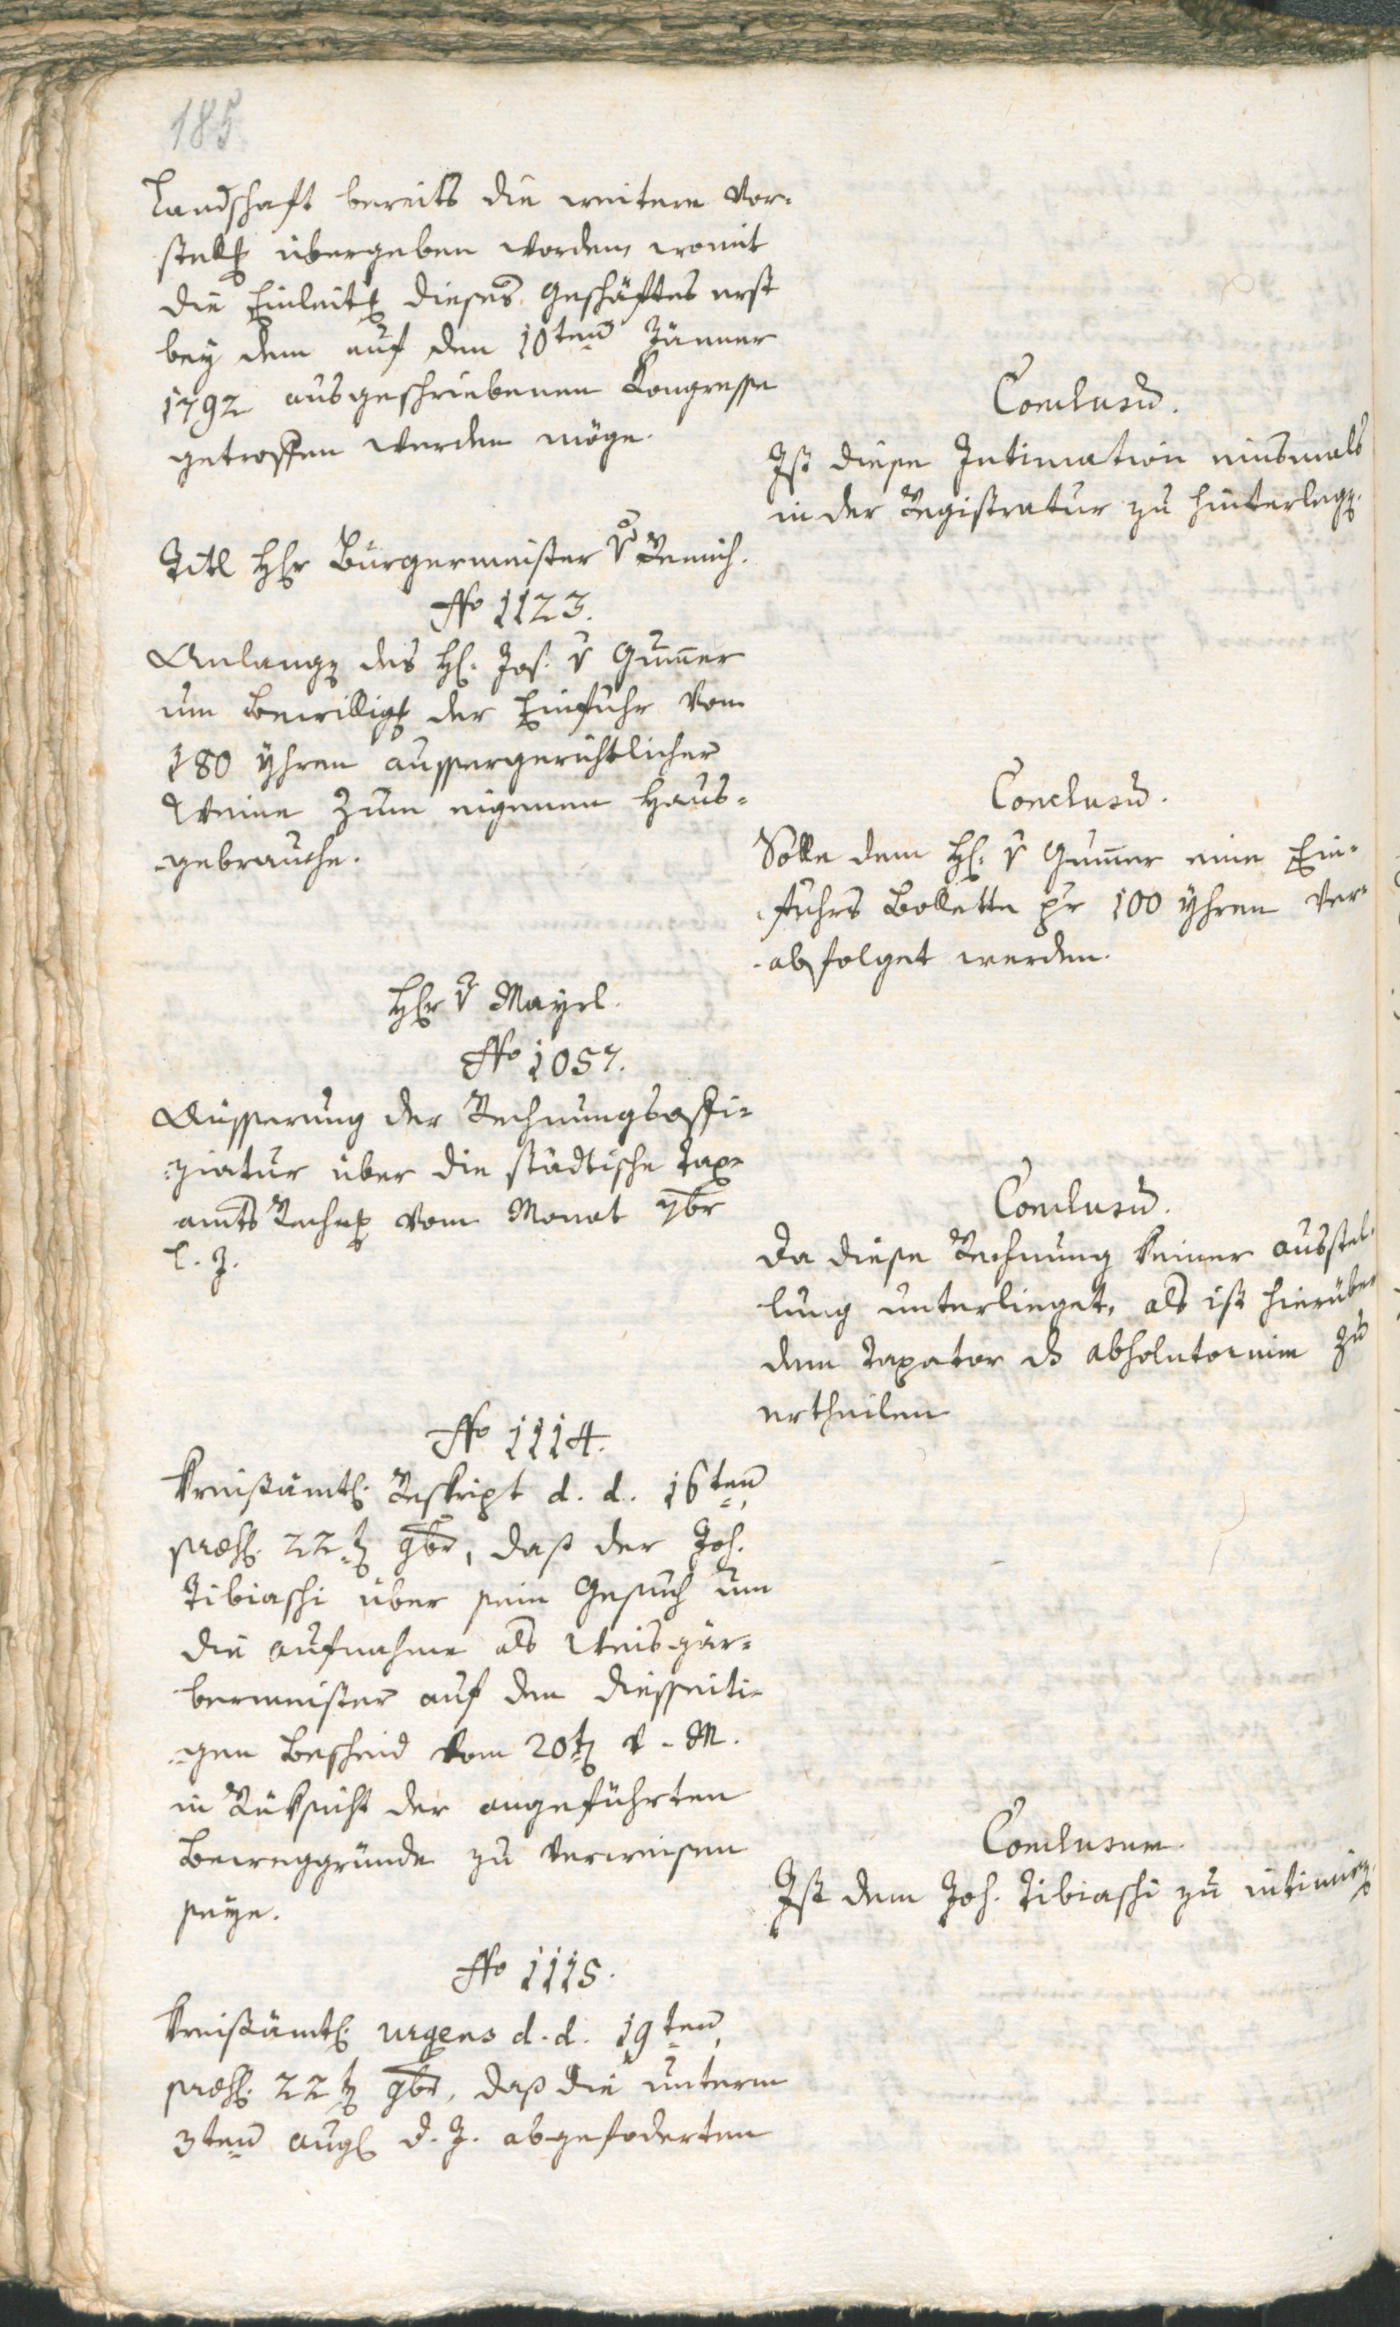 185
Landschaft bereits die weitere Vor-
stellg übergeben worden, womit
die Einleitg dieses Geschäftes erst
bey dem auf den 10ten Jänner
1792 ausgeschriebenen Kongresse
getroffen werden möge.
Conclusū.
Ist diese Intimation einsmals
in der Registratur zu hinterlegen.
Titl Hr Bürgermeister v Remich.
No 1123.
Anlangen des H. Jos. v Gumer
um Bewilligg der Einfuhr von
180 Yhren aussergerichtlicher
Weine zum eigenen Haus-
-gebrauche.
Conclusū.
Solle dem H. v Gumer eine Ein-
-fuhrs Bollette pr 100 Yhren ver-
-abfolget werden.
Hr v Mayrl.
No 1057.
Äusserung der Rechnungsoffi-
-ziatur über die städtische Tax-
amts Rechng vom Monat 7br
l. J.
Conclusū.
Da diese Rechnung keiner Ausstel-
lung unterlieget, als ist hierüber
dem Taxator ds absolutorium zu
ertheilen
No 1114.
Kreisämtl. Reskript d. d. 16ten
praes. 22t 9br, daß der Joh.
Tibiaschi über sein Gesuch um
die Aufnahme als Weisgär-
bermeister auf den diesseiti-
-gen Bescheid vom 20t v. M.
in Rüksicht der angeführten
Beweggründe zu verweisen
seye.
Conclusum
Ist dem Joh. Tibiaschi zu intimiren.
No 1115.
Kreisämtl. urgens d. d. 19ten
praes. 22t 9br, daß die unterm
3ten Aug d. J. abgefoderten